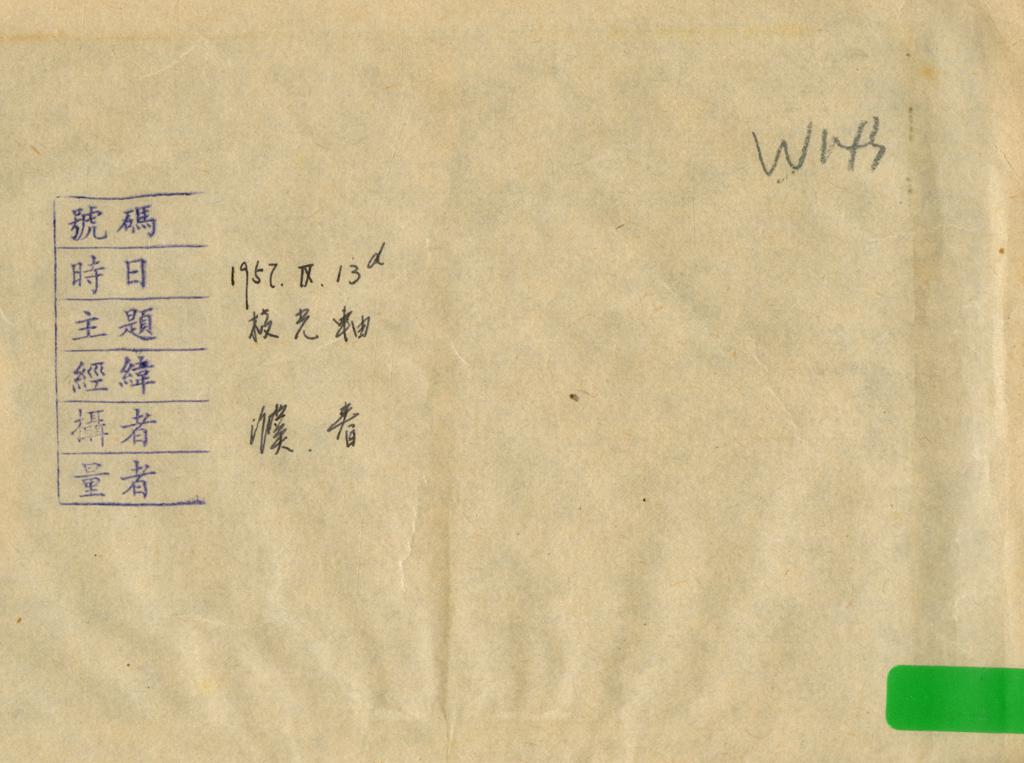 W143
號碼
時日 1957. IX. 13d
主題 校光軸
經緯
攝者 濮. 春
量者